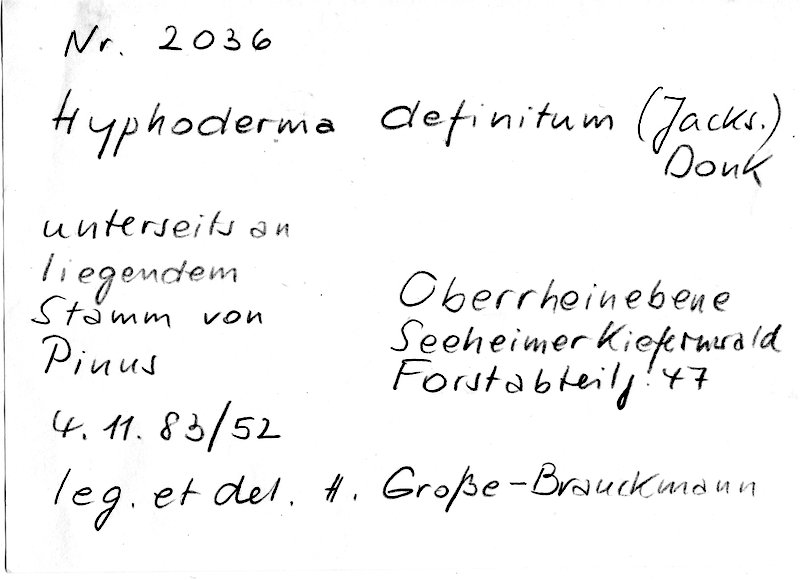 Nr. 2036
Hyphoderma definitum (Jacks.)
Donk
unterseits an
liegendem
Stamm von
Pinus
Oberrheinebene
Seeheimer Kiefernwald
Forstabteilg. 47
4. 11. 83/52
leg. et del. H. Große-Brauckmann